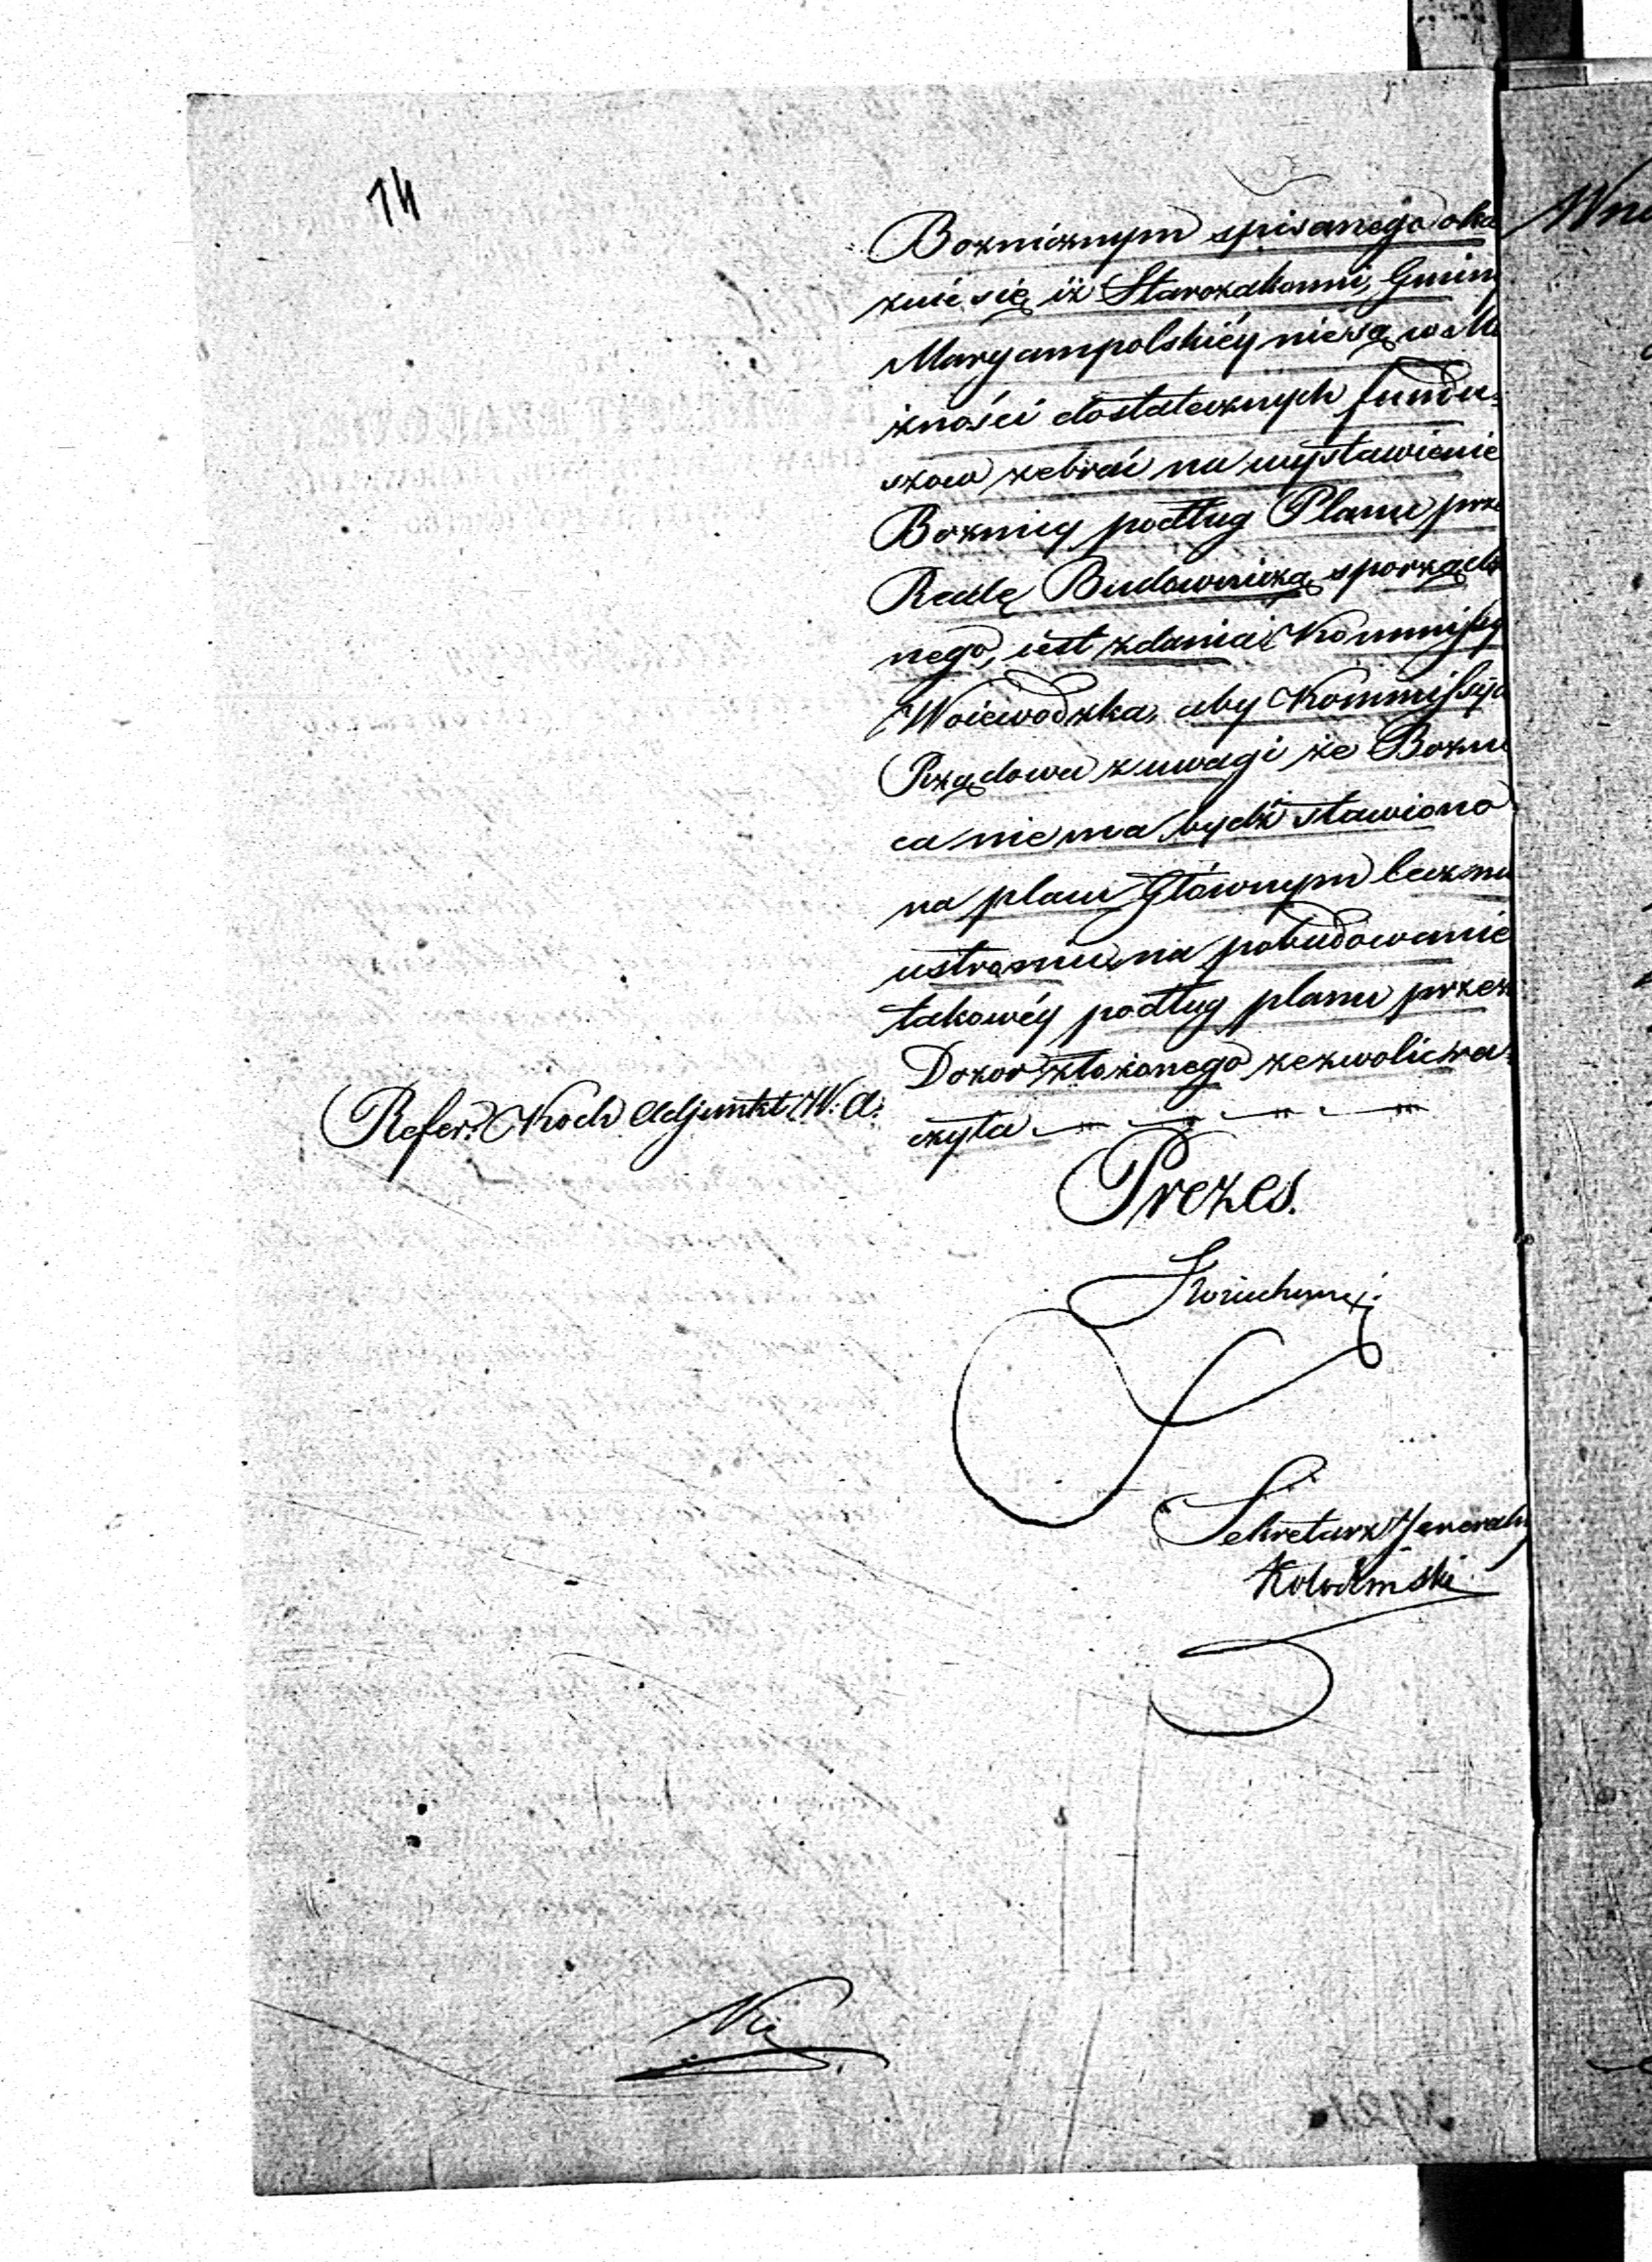 14
Boznicznym spisanego oka
zuie się iż Starozakonni, Gminy
Maryampolskiéy nie są w Mo
żności dostatecznych fundu-
szow zebrać na wystawienie
Boznicy podług Planu prze
Radę Budowniczą sporządzo
nego, iest zdania Kommissya
Woiewodzka, aby Kommissya
Rządowa z uwagi że Bozni
ca nie ma bydź stawiona
na placu Głównym lecz na
ustroniu, na pobudowanie
takowéy podług planu przez
Dozor złożonego zezwolic ra-
czyła
Refer: Koch Adjunkt W. A:
Prezes.
Sekretarz Jeneralny